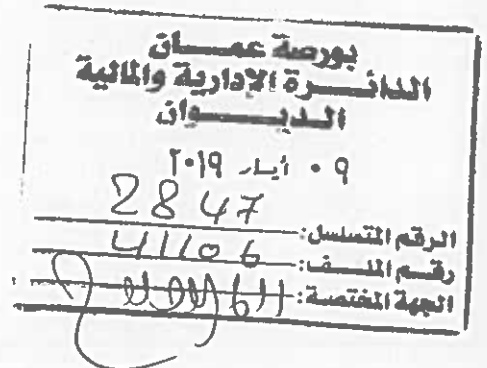 بورصة عمــــان
الدائــــرة الإدارية والمالية
الديــــوان
٠٩ أيار ٢٠١٩
2847
الرقم المتسلسل:
41106
رقم الملف:
الجهة المختصة: